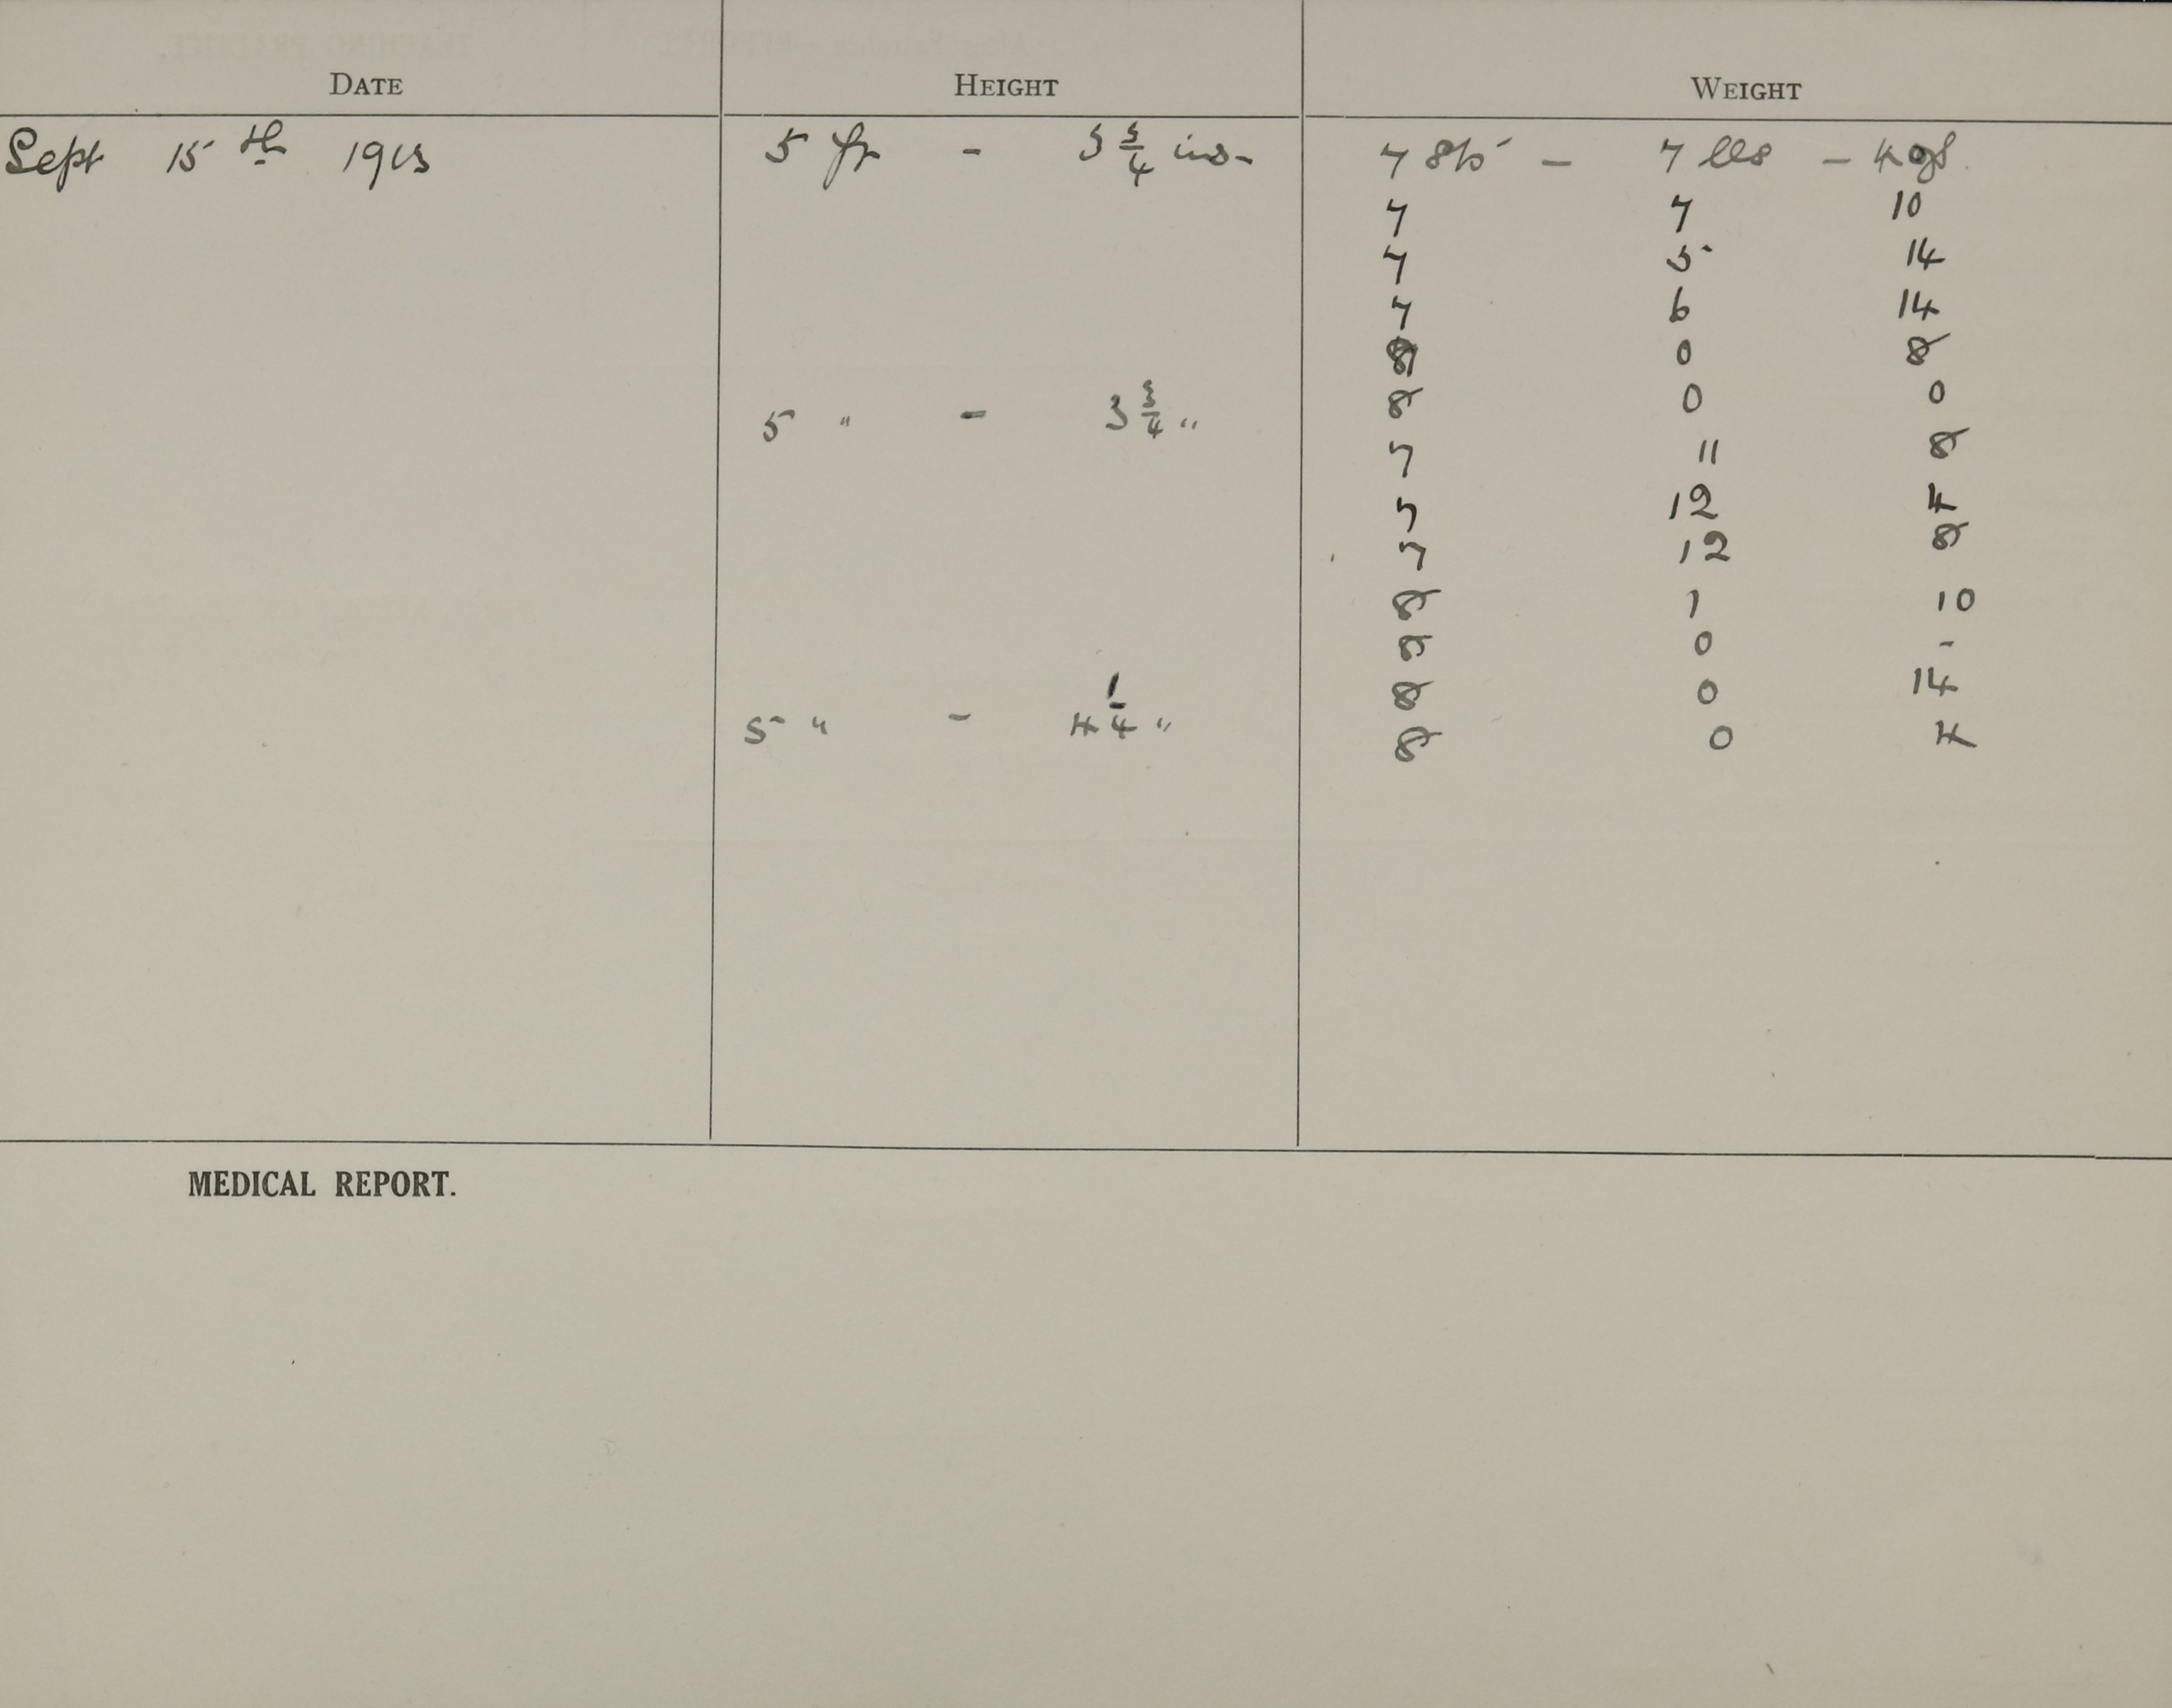 DATE HEIGHT WEIGHT
Sept 15th 1913 5 ft - 3 3/4 ins- 7 sts - 7 lbs - 4 ozs.
7 7 10
7 5 14
7 6 14
8 0 8
5 " - 3 3/4 " 8 0 0
7 11 8
7 12 4
7 12 8
8 1 10
8 0 -
8 0 14
5 " - 4 1/4 " 8 0 4
MEDICAL REPORT.